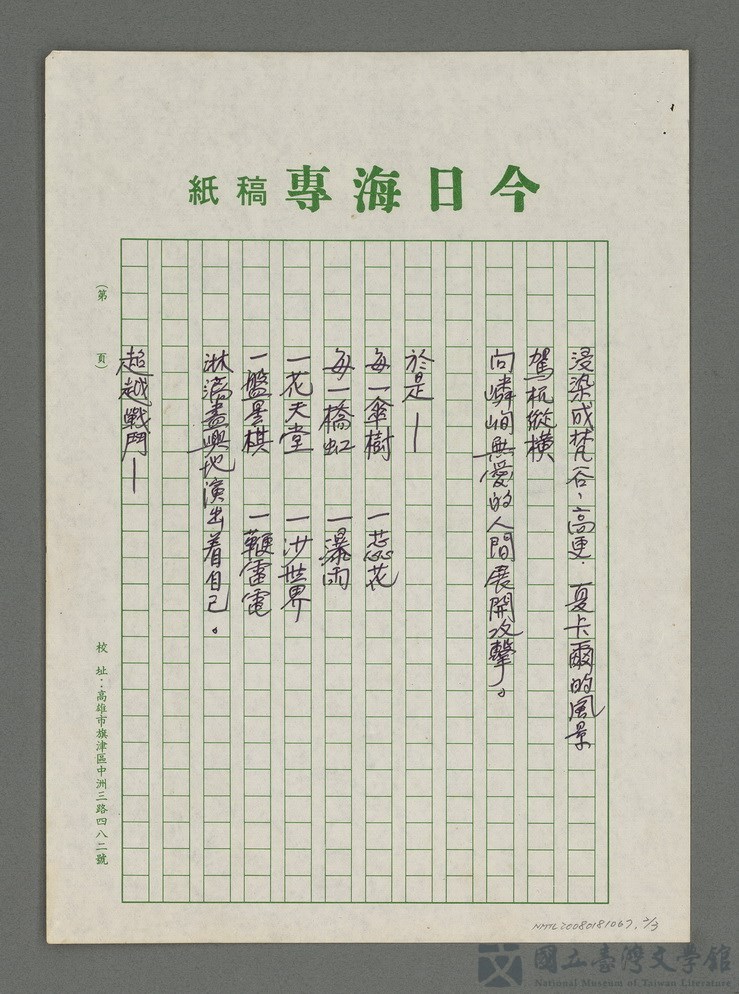 今日海專稿紙
浸染成梵谷、高更、夏卡爾的風景
駕杭縱橫
向嶙峋無愛的人間展開攻擊。
於是—
每一傘樹　一蕊花
每一橋虹　一瀑雨
一花天堂　一沙世界
一盤星棋　一鞭雷電
淋漓盡興地演出着自己。
超越戰鬥—
(第　頁)
校址：高雄市旗津區中洲三路四八二號
NMTL20080181067, 2/3
國立臺灣文學館
National Museum of Taiwan Literature